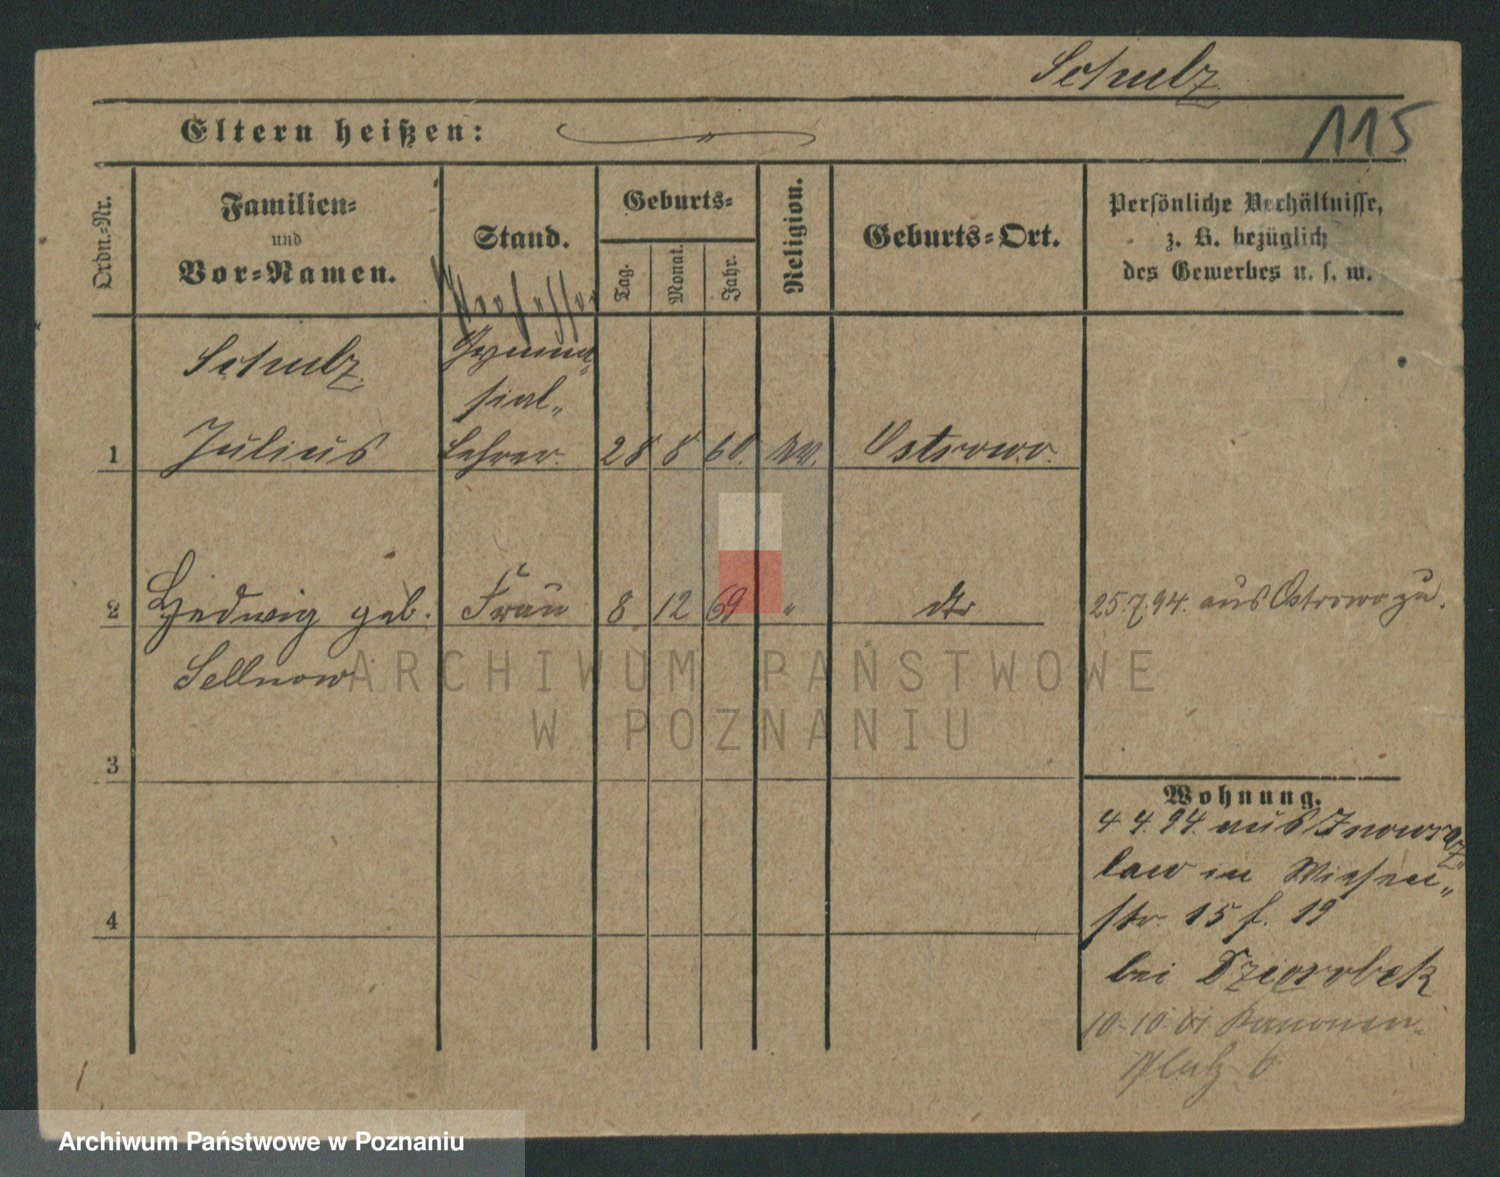 Schulz
115
Eltern heißen:
Ordn.-Nr.
Familien-
und
Vor-Namen.
Stand.
Geburts-
Tag.
Monat.
Jahr.
Religion.
Geburts-Ort.
Persönliche Verhältnisse,
z. B. bezüglich
des Gewerbes u. s. w.
Professor
Schulz
Gymna„
sial„
1 Julius Lehrer 28 8 60. ev. Ostrowo.
2 Hedwig geb. Frau 8 12 69 " dto 25.7.94. aus Ostrowo zu.
Sellnow
3
Wohnung.
4 4. 94. aus Inowraz„
law in Wiesen„
4
str. 15 f. 19
bei
10.10 01 Kanonen-
Platz 6
ARCHIWUM PAŃSTWOWE
W POZNANIU
Archiwum Państwowe w Poznaniu